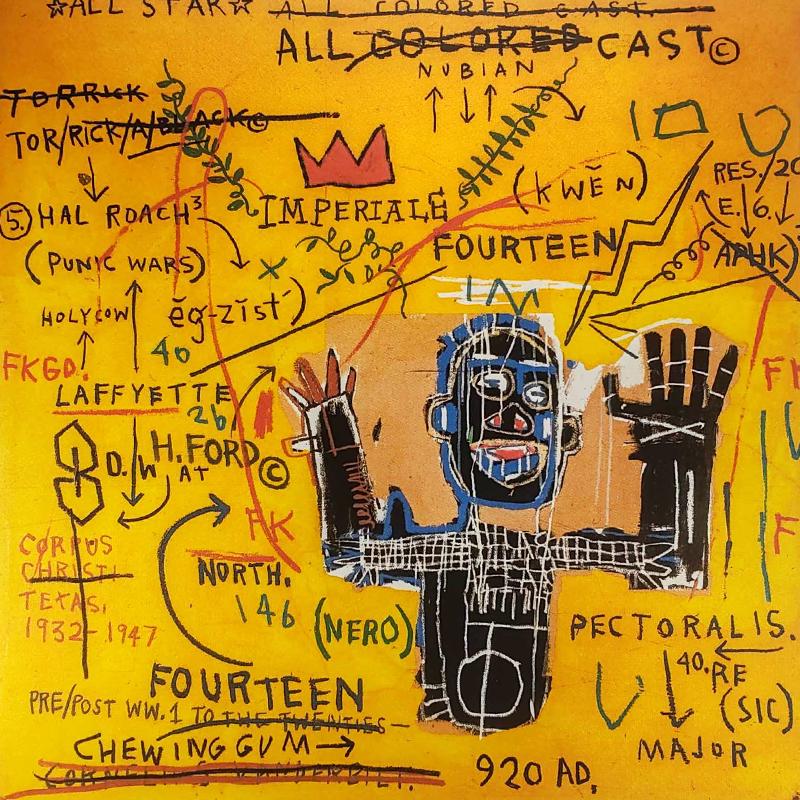 ☆ALL STAR☆ ALL COLORED CAST.
ALL COLORED CAST©
NUBIAN
TORRICK
TOR/RICK/A/BLACK©
IMPERIALE
(kwĕn)
RES./20
E./6.
(APHK)
5. HAL ROACH³
(PUNIC WARS)
FOURTEEN
HOLYCOW
ĕg-zĭst´)
40
FKGD.
LAFFYETTE
26
D./W H. FORD©
AT
CORPUS
CHRISTI
TEXAS,
1932-1947
FK
NORTH.
146 (NERO)
PECTORALIS.
40. RE
(SIC)
MAJOR
FOURTEEN
PRE/POST WW.1 TO THE TWENTIES
CHEWING GUM
CORNELIUS VANDERBILT.
920 AD.